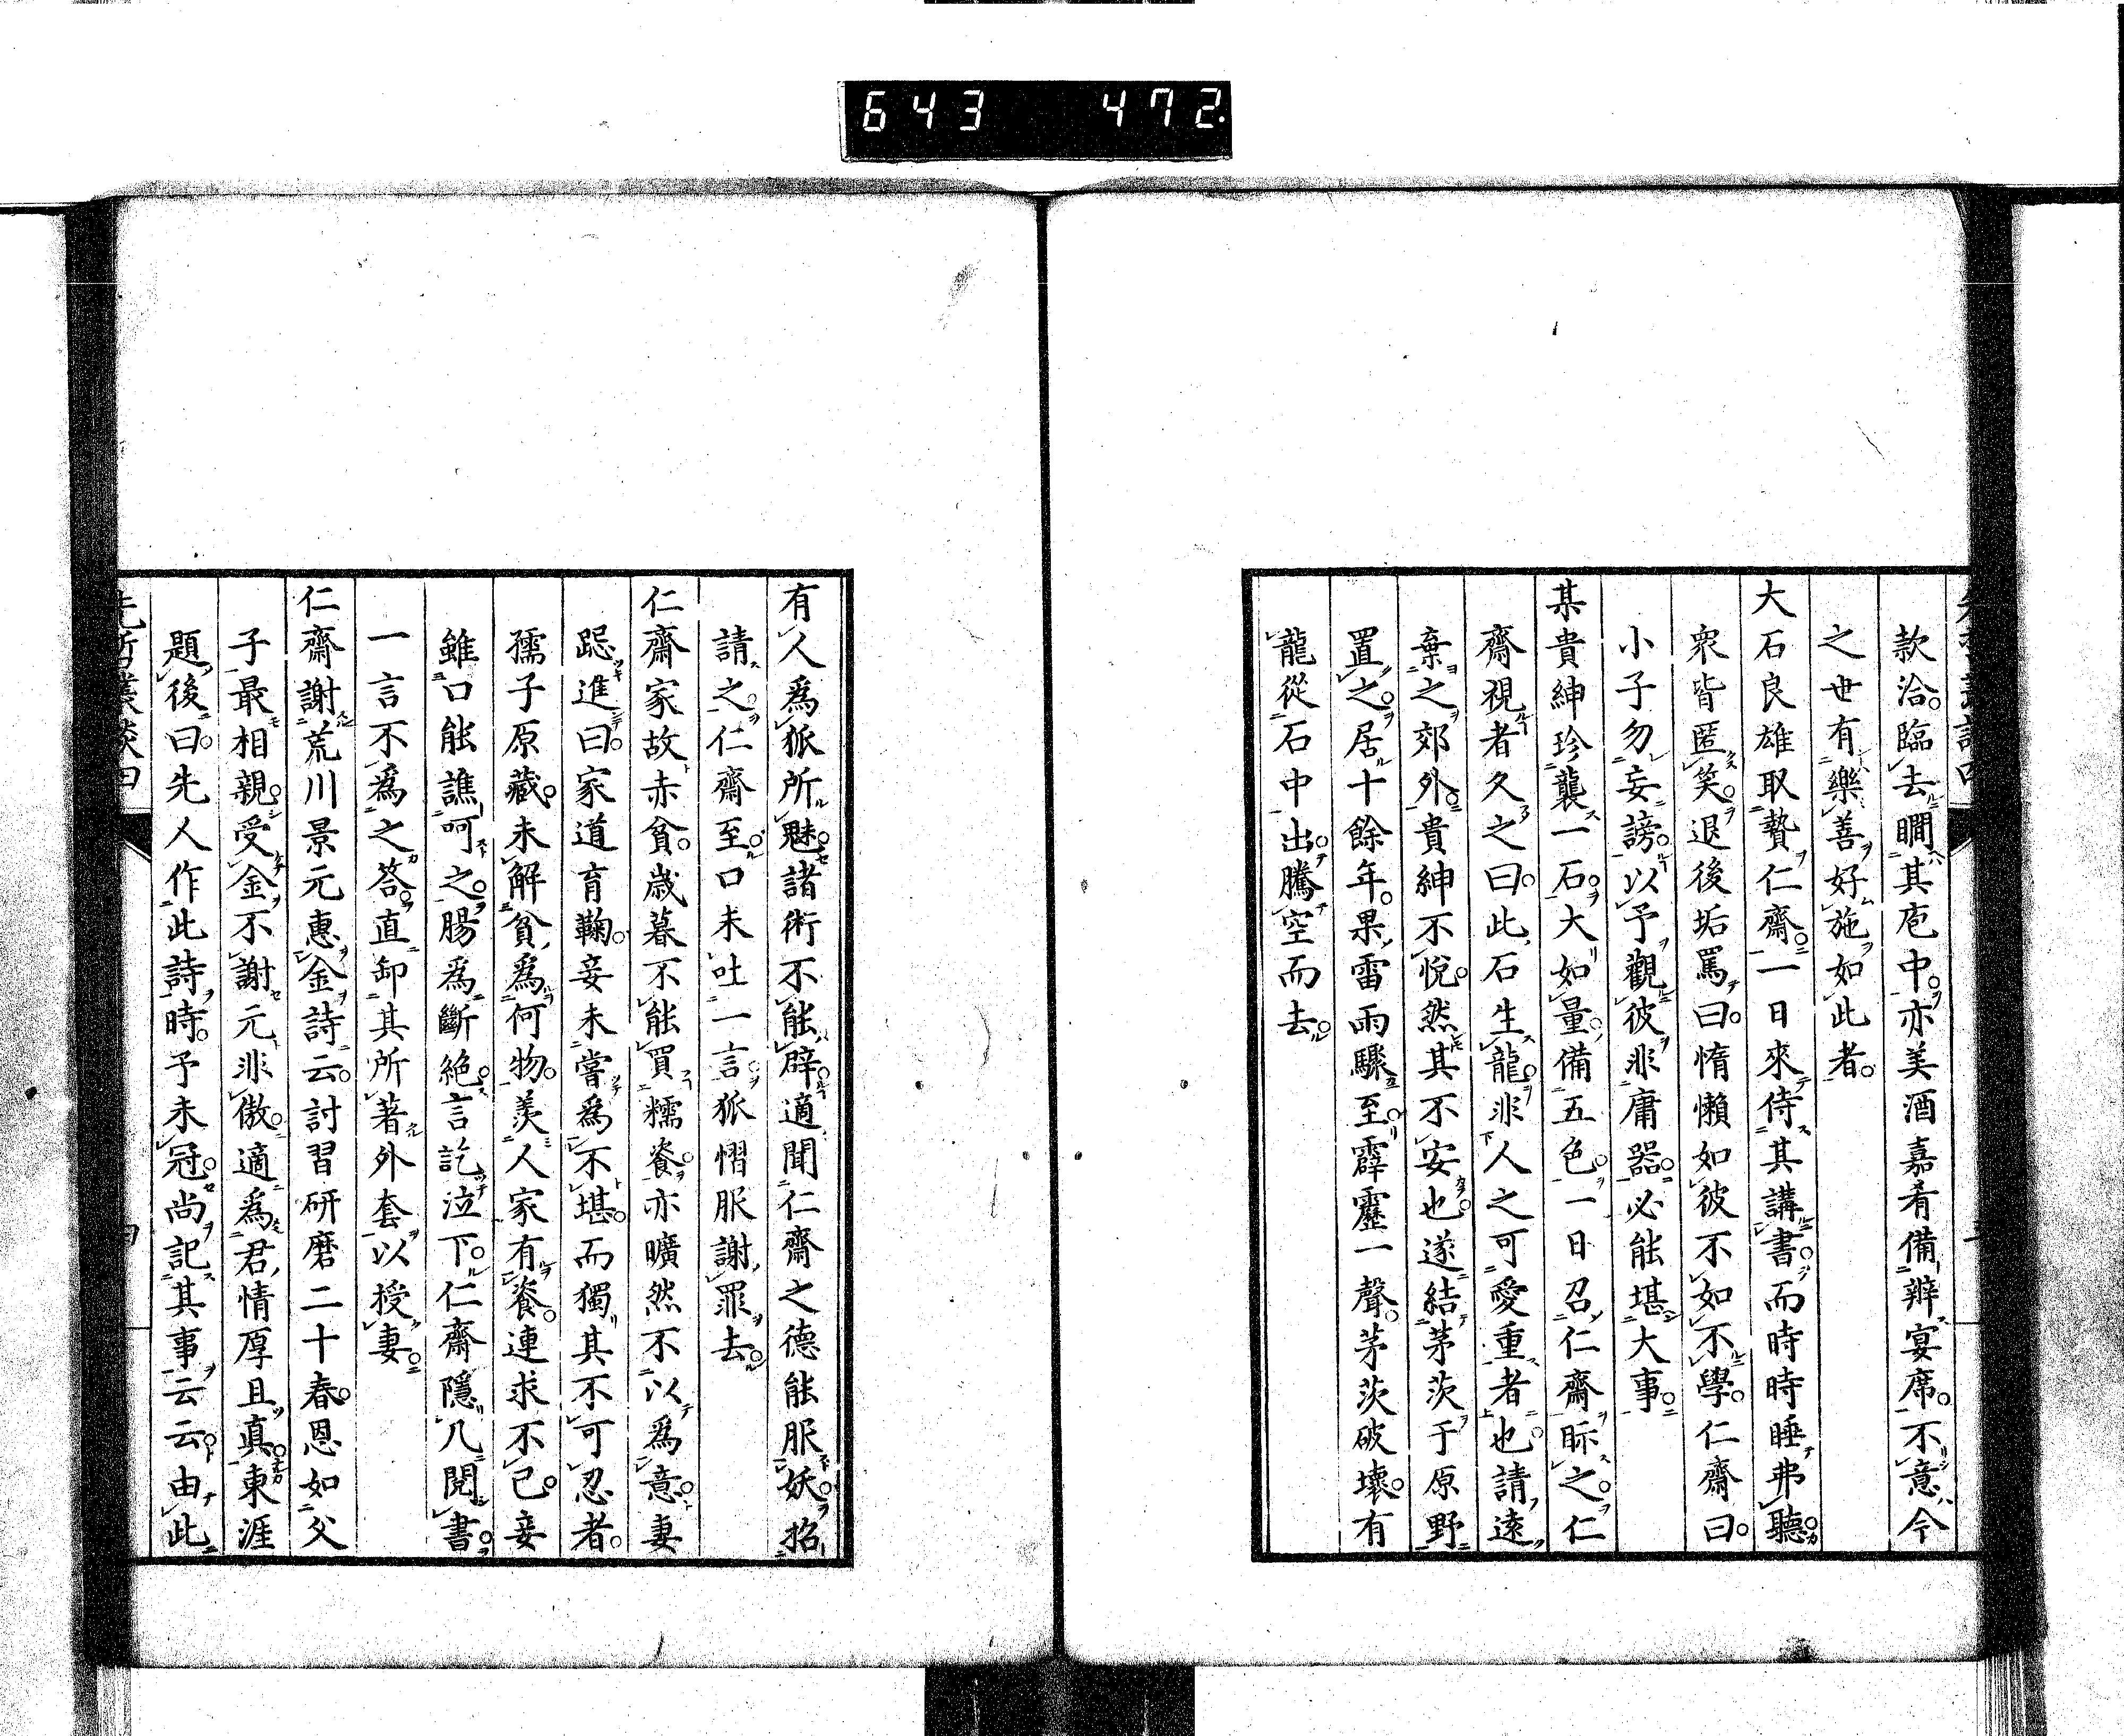 643 472.
款洽。臨去瞯其庖中。亦美酒嘉肴備辦宴席。不意今
之世有樂善好施如此者。
大石良雄取贄仁齋。一日來侍其講書。而時時睡弗聽。
衆皆匿笑。退後垢罵曰。惰懶如彼不如不學。仁齋曰。
小子勿妄謗。以予觀彼非庸器。必能堪大事。
某貴紳珍襲一石。大如量。備五色。一日召仁齋眎之。仁
齋視者久之曰。此石生龍。非人之可愛重者也。請遠
棄之郊外。貴紳不悅。然其不安也。遂結茅茨于原野
置之。居十餘年。果雷雨驟至。霹靂一聲。茅茨破壞。有
龍從石中出。騰空而去。
有人爲狐所魅。諸術不能辟。適聞仁齋之德能服妖。招
請之。仁齋至。口未吐一言。狐慴服謝罪去。
仁齋家故赤貧。歲暮不能買糯餈。亦曠然不以爲意。妻
跽進曰。家道育鞠。妾未嘗爲不堪。而獨其不可忍者。
孺子原藏。未解貧爲何物。羨人家有餈。連求不已。妾
雖口能譙呵之。腸爲斷絕。言訖泣下。仁齋隱几閱書。
一言不爲之答。直卸其所著外套以授妻。
仁齋謝荒川景元惠金詩云。討習研磨二十春。恩如父
子最相親。受金不謝元非傲。適爲君情厚且真。東涯
題後曰。先人作此詩時。予未冠。尚記其事云云。由此
先哲叢談 四